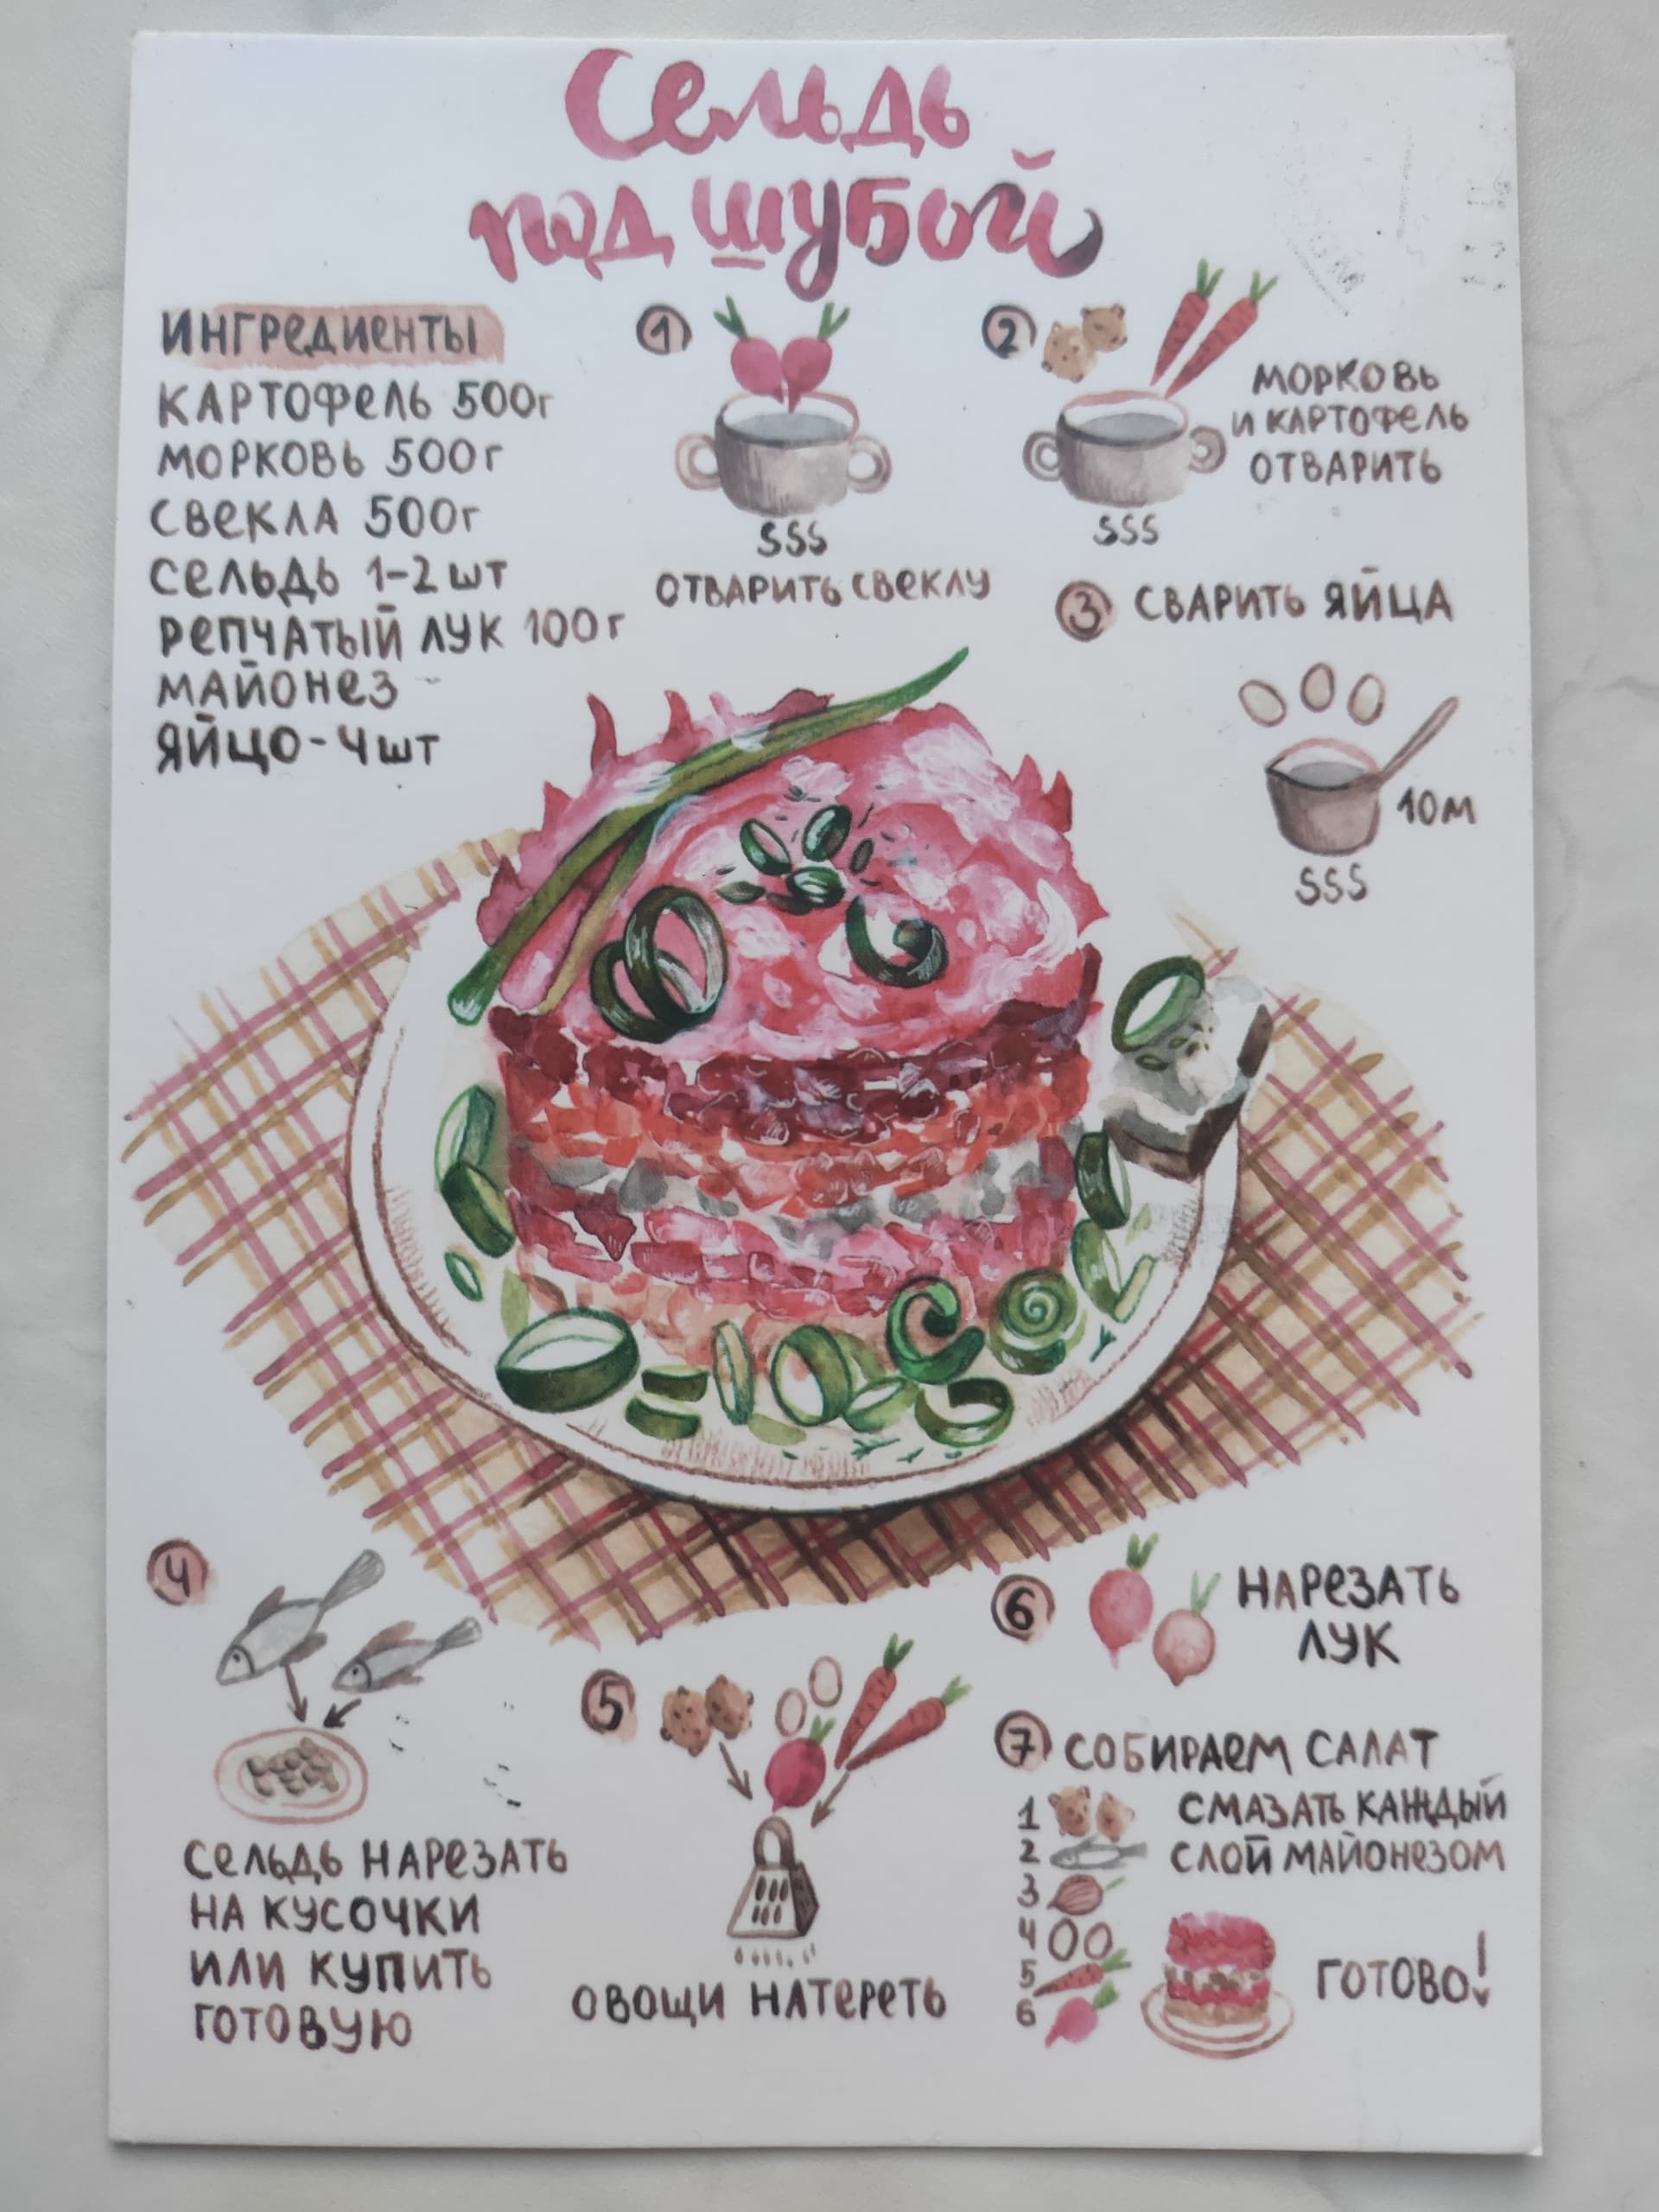 Сельдь
под шубой
ИНГРЕДИЕНТЫ
КАРТОФЕЛЬ 500г
МОРКОВЬ 500г
СВЕКЛА 500г
СЕЛЬДЬ 1-2 шт
РЕПЧАТЫЙ ЛУК 100г
МАЙОНЕЗ
ЯЙЦО-4шт
1
SSS
ОТВАРИТЬ СВЕКЛУ
2
МОРКОВЬ
И КАРТОФЕЛЬ
ОТВАРИТЬ
SSS
3 СВАРИТЬ ЯЙЦА
10м
SSS
4
СЕЛЬДЬ НАРЕЗАТЬ
НА КУСОЧКИ
ИЛИ КУПИТЬ
ГОТОВУЮ
5
ОВОЩИ НАТЕРЕТЬ
6 НАРЕЗАТЬ
ЛУК
7 СОБИРАЕМ САЛАТ
1 СМАЗАТЬ КАЖДЫЙ
2 СЛОЙ МАЙОНЕЗОМ
3
4
5
6
ГОТОВО!